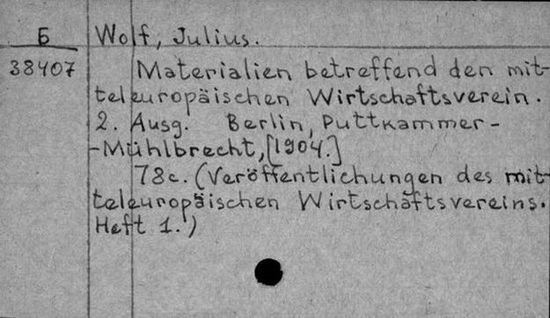 Б Wolf, Julius.
38407 Materialien betreffend den mit-
teleuropäischen Wirtschaftsverein.
2. Ausg. Berlin, Puttkammer-
-Mühlbrecht, [1904.]
78с. (Veröffentlichungen des mit-
teleuropäischen Wirtschaftsvereins.
Heft 1.)